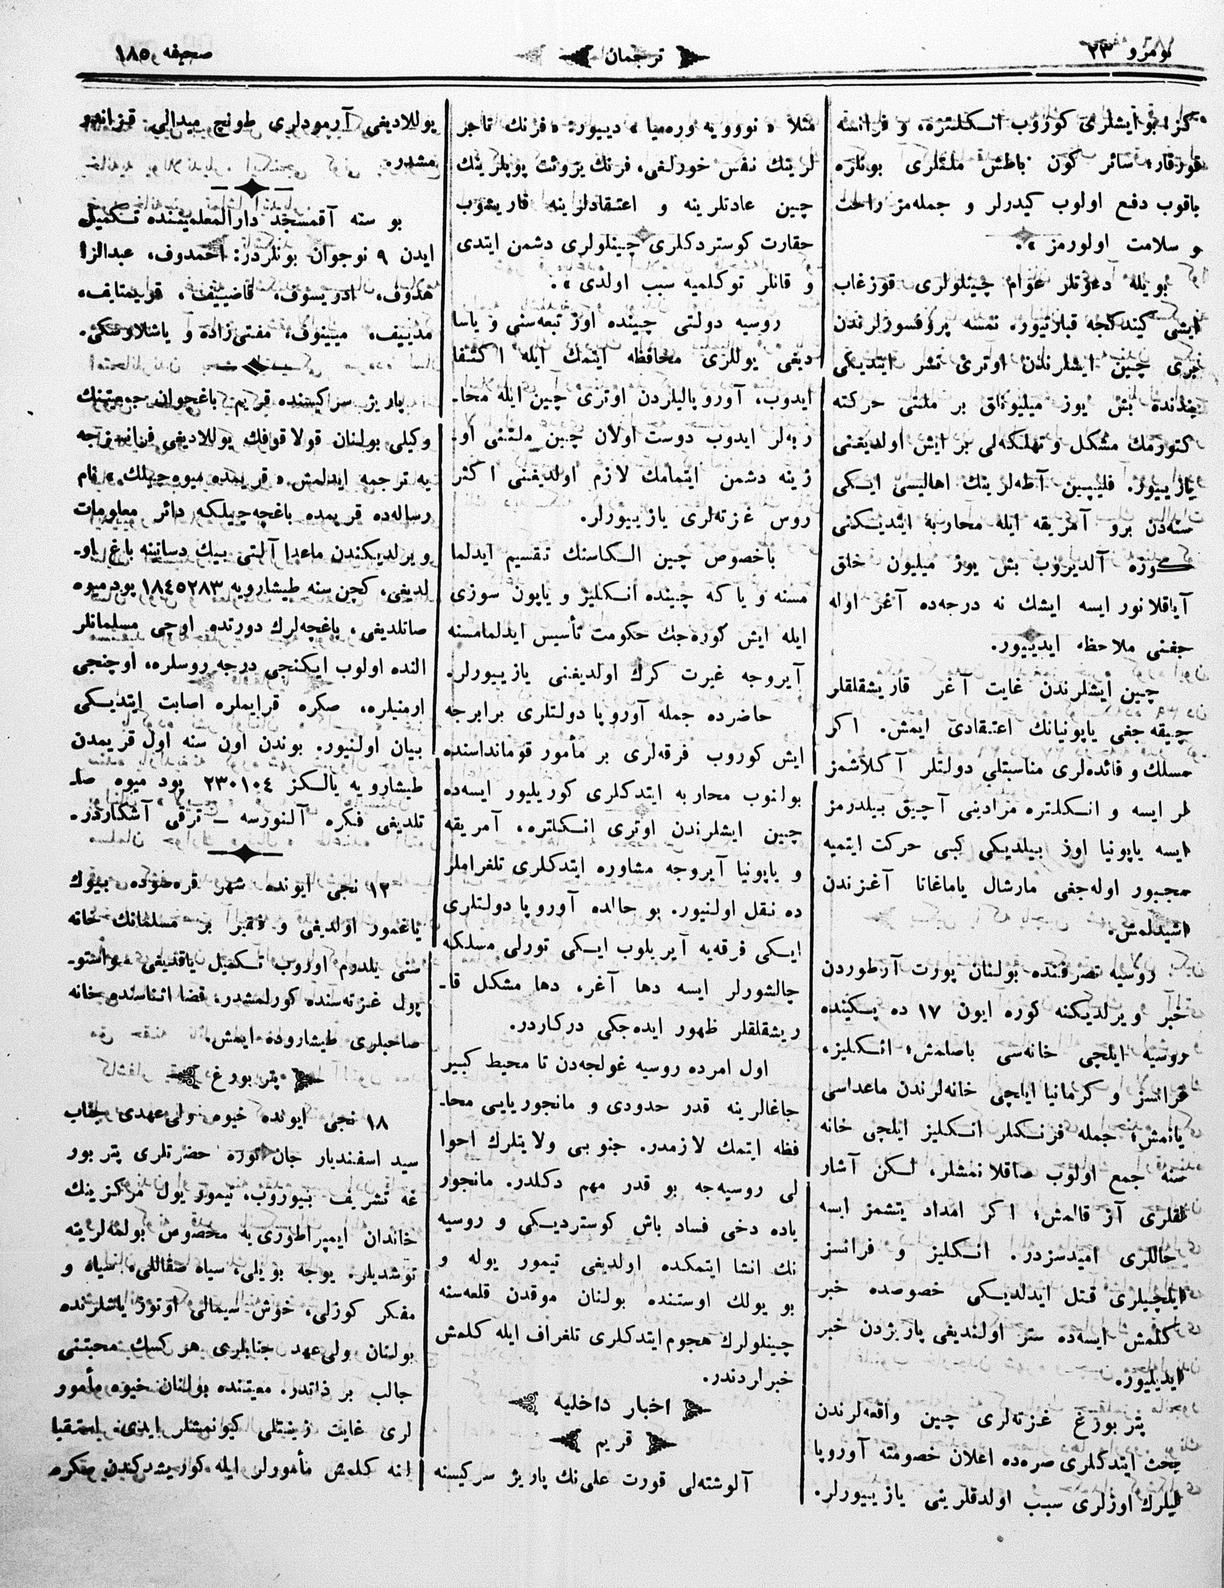 نومرو ٢٣
ترجمان
صحیفه ١٨٥
كز، بو ایشلری كوروب انكلتره، و فرانسه
قورقار؛ سائر كون باطش ملتلری بونلره
باقوب دفع اولوب كیدرلر و جمله‌مز راحت
و سلامت اولورمز ».
بویله دعوتلر عوام چینلولری قوزغاب
ایشی كیتدكجه قبلاتیور. نمسه پروفسورلرندن
بری چین ایشلرندن اوتری نشر ایتدیكی
بندنده بش یوز میلیونلق بر ملتی حركته
كتورمك مشكل و تهلكه‌لی بر ایش اولدیغنی
یازییور. فلیپین آطه‌لرینك اهالیسی ایكی
سنه‌دن برو آمریقه ایله محاربه ایتدیكنی
كوزه آلدیروب بش یوز میلیون خلق
آیاقلانور ایسه ایشك نه درجه‌ده آغر اوله
جغنی ملاحظه ایدییور.
چین ایشلرندن غایت آغر قاریشقلقلر
چیقه‌جغی یاپونیانك اعتقادی ایمش. اكر
مسلك و فائده‌لری مناسبتلی دولتلر آكلاشمز
لر ایسه و انكلتره مرادینی آچیق بیلدرمز
ایسه یاپونیا اوز بیلدیكی كبی حركت ایتمیه
مجبور اوله‌جغی مارشال یاماغاتا آغزندن
اشیدلمش.
روسیه تصرفنده بولنان پورت آرطوردن
خبر ویرلدیكنه كوره ایون ١٧ ده پكینده
روسیه ایلچی خانه‌سی باصلمش؛ انكلیز،
فرانسز و كرمانیا ایلچی خانه‌لرندن ماعداسی
یانمش؛ جمله فرنكلر انكلیز ایلچی خانه
سنه جمع اولوب صاقلانمشلر، لكن آشار
لقلری آز قالمش؛ اكر امداد یتشمز ایسه
حاللری امیدسزدر. انكلیز و فرانسز
ایلچیلری قتل ایدلدیكی خصوصده خبر
كلمش ایسه‌ده ستر اولندیغی پاریژدن خبر
ایدیلیور.
پتربورغ غزته‌لری چین واقعه‌لرندن
بحث ایتدكلری صره‌ده اعلان خصومته آوروپا
لیلرك اوزلری سبب اولدقلرینی یازییورلر.
مثلا « نووویه وره‌میا » دییور: « فرنك تاجر
لرینك نفس خورلغی، فرنك پروتست پوپلرینك
چین عادتلرینه و اعتقادلرینه قاریشوب
حقارت كوستردكلری چینلولری دشمن ایتدی
و قانلر توكلمیه سبب اولدی ».
روسیه دولتی چینده اوز تبعه‌سنی و یاسا
دیغی یوللری محافظه ایتمك ایله اكتفا
ایدوب، آوروپالیلردن اوتری چین ایله محا-
ربه‌لر ایدوب دوست اولان چین ملتنی او-
زینه دشمن ایتمامك لازم اولدیغنی اكثر
روس غزته‌لری یازییورلر.
باخصوص چین الكاسنك تقسیم ایدلما
مسنه و یاكه چینده انكلیز و یاپون سوزی
ایله ایش كوره‌جك حكومت تأسیس ایدلمامسنه
آیروجه غیرت كرك اولدیغنی یازییورلر.
حاضرده جمله آوروپا دولتلری برابرجه
ایش كوروب فرقه‌لری بر مأمور قومانداسنده
بولنوب محاربه ایتدكلری كوریلیور ایسه‌ده
چین ایشلرندن اوتری انكلتره، آمریقه
و یاپونیا آیروجه مشاوره ایتدكلری تلغراملر
ده نقل اولنیور. بو حالده آوروپا دولتلری
ایكی فرقه‌یه آیریلوب ایكی تورلی مسلكه
چالشورلر ایسه دها آغر، دها مشكل قا-
ریشقلقلر ظهور ایده‌جكی دركاردر.
اول امرده روسیه غولجه‌دن تا محیط كبیر
جاغالرینه قدر حدودی و مانجوریایی محا-
فظه ایتمك لازمدر. جنوبی ولایتلرك احوا
لی روسیه‌جه بو قدر مهم دكلدر. مانجور
یاده دخی فساد باش كوستردیكی و روسیه
نك انشا ایتمكده اولدیغی تیمور یوله و
بو یولك اوستنده بولنان موقدن قلعه‌سنه
چینلولرك هجوم ایتدكلری تلغراف ایله كلمش
خبرلردندر.
اخبار داخلیه
قریم
آلوشته‌لی قورت علی‌نك پاریژ سركیسنه
یوللادیغی آرمودلری طونچ میدالی قزانمو
مشدر.
بو سنه آقمسجد دارالمعلمیننده تكمیل
ایدن ٩ نوجوان بونلردر: احمدوف، عبدالزا
هدوف، ادریسوف، قاضییف، قریمتایف،
مدییف، میینوف، مفتی‌زاده و یاشلاوسكی.
پاریژ سركیسنده قریم باغجوان جمعیتنك
وكیلی بولنان قولاقوفك یوللادیغی فرانسزجه
یه ترجمه ایدلمش « قریمده میوه‌جیلك » نام
رساله‌ده قریمده باغچه‌جیلكه دائر معلومات
ویرلدیكندن ماعدا آلتی بیك دسانینه باغ او-
لدیغی، كچن سنه طیشارویه ١٨٤٥٢٨٣ پود میوه
صاتلدیغی، باغچه‌لرك دورتده اوچی مسلمانلر
النده اولوب ایكنجی درجه روسلره، اوچنجی
ارمنیلره، صكره قرایملره اصابت ایتدیكی
بیان اولنیور. بوندن اون سنه اول قریمدن
طیشارویه یالكز ٢٣٠١٠٤ پود میوه صا-
تلدیغی فكره آلنورسه — ترقی آشكاردر.
١٢ نجی ایونده شهر قره‌صوده بیوك
یاغمور اولدیغی و فقیر بر مسلمانك خانه
سنی یلدرم اوروب تكمیل یاقدیغی سواستو-
پول غزته‌سنده كورلمشدر، قضا اثناسنده خانه
صاحبلری طیشاروده ایمش.
پتربورغ
١٨ نجی ایونده خیوه ولی‌عهدی جناب
سید اسفندیار جان توره حضرتلری پتربور
غه تشریف بیوروب، تیمور یول مركزینك
خاندان ایمپراطوری‌یه مخصوص بولمه‌لرینه
توشدیلر. یوجه بویلی، سیاه صقاللی، سیاه و
مفكر كوزلی، خوش سیمالی اوتوز یاشلرنده
بولنان ولی‌عهد جنابلری هر كسك محبتنی
جالب بر ذاتدر. معیتنده بولنان خیوه مأمور
لری غایت زینتلی كیونمیشلر ایدی. استقبا
لنه كلمش مأمورلر ایله كوریشدكدن صكره